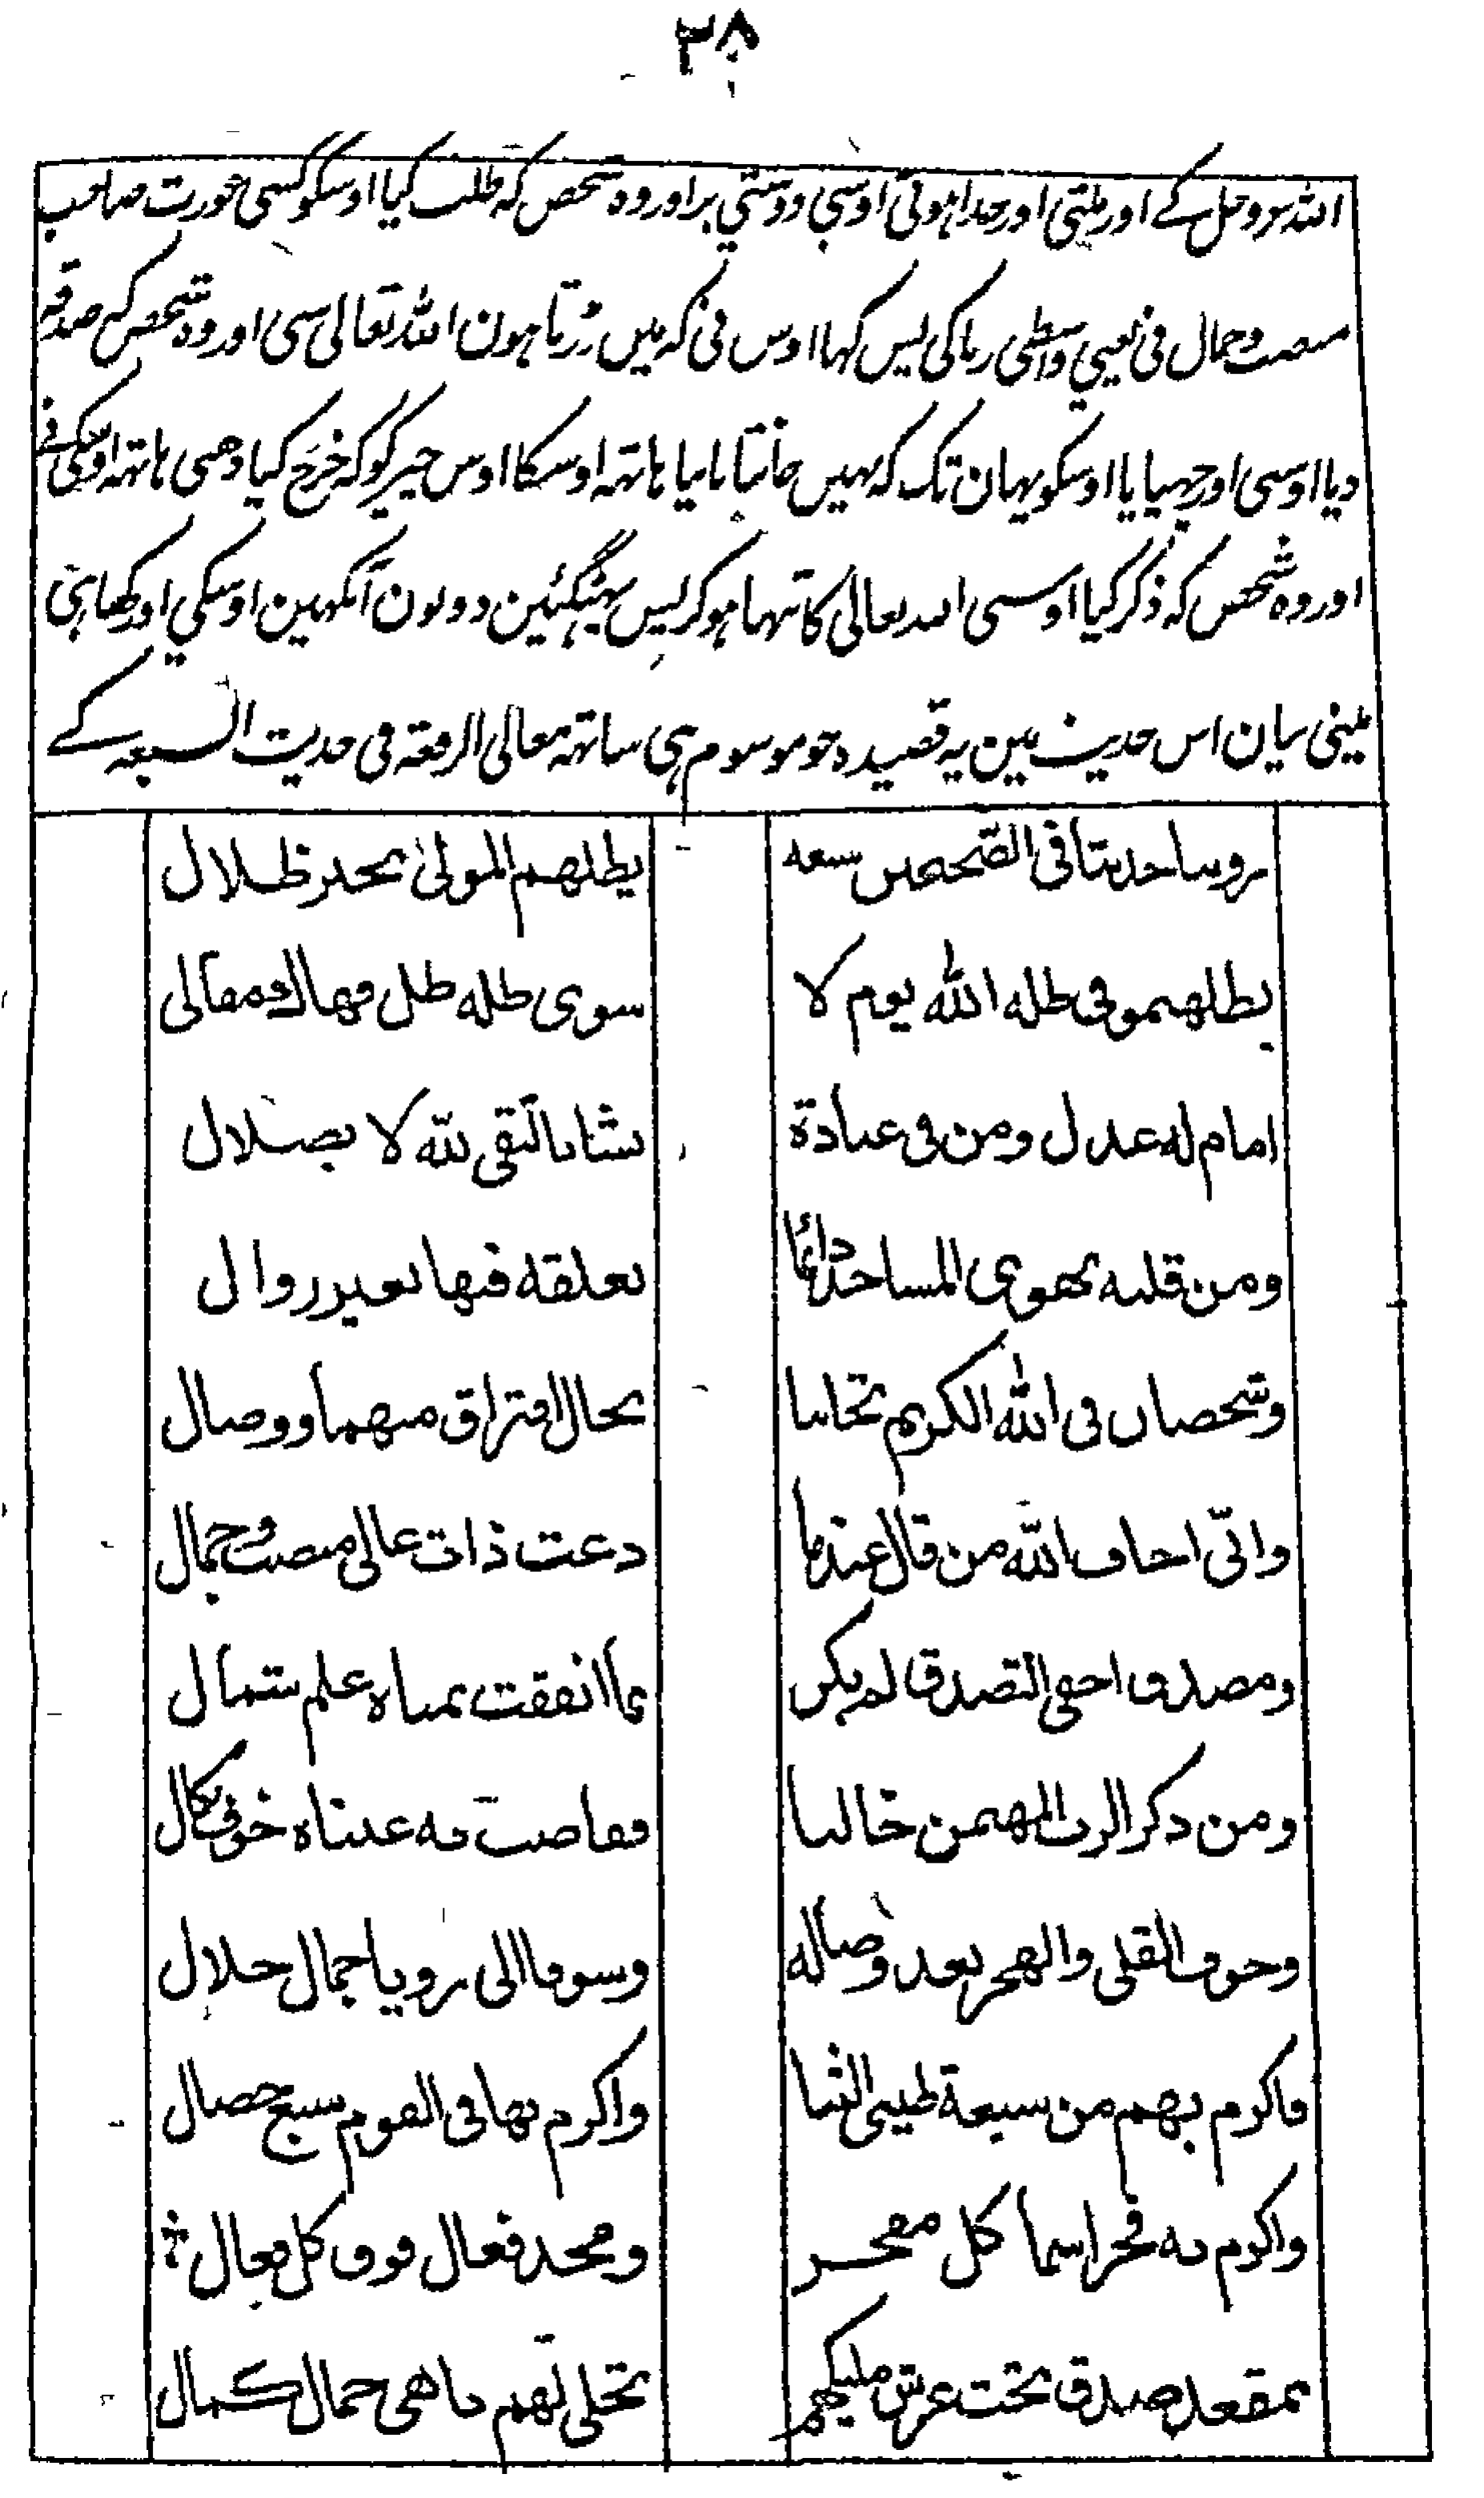 ٣٨
اللہ عز وجل کے اور ملتی اور جدا ہوئی اوسی دوستي پر اور وہ شخص کہ طلب کیا اوسکو کسی عورت صاحب
منصب و جمال نی اپسي واسطی زنا کی پس کہا اوس نی کہ میں ڈرتا ہون اللہ تعالی سی اور وہ شخص کہ صدقہ
دیا اوسی اور چہپایا اوسکو یہان تک کہ نہیں جانتا بایا ہاتہ اوسکا اوس چیز کو کہ خرچ کیا دہنی ہاتہ اوسکی نے
اور وہ شخص کہ ذکر کیا اوسی اللہ تعالی کا تنہا ہو کر پس بہگئین دونون آنکہین اوسکي اور لکھا ہی
مینی بیان اس حدیث مین یہ قصیدہ جو موسوم ہی ساتہہ معالی الرفعة فی حدیث السبعہ کے
روينا حديثا في الصحيحين سبعه يظلهم المولى بخير ظلال
يظلهمو في ظله الله يوم لا سوى ظله ظل فهاك مقالي
امام له عدل ومن في عبادة نشا بالتقى لله لا بضلال
ومن قلبه يهوى المساجد دائما تعلقه فيها بغير زوال
وشخصان في الله الكريم تحابا بحال افتراق منهما ووصال
واني اخاف الله من قال عندما دعت ذات عالي منصب وجمال
ومصدق اخفى التصدق لم يكن بما انفقت يمناه علم شمال
ومن ذكر الرب المهيمن خاليا ففاضت به عيناه خوف نكال
وخوف القلى والهجر بعد وصاله وشوقا الى رويا جمال جلال
فاكرم بهم من سبعة طيبي الثنا واكرم بها في القوم سبع خصال
واكرم به فخرا سما كل مفخر ومجد فعال فوق كل فعال
بمقعد صدق تحت عرش مليكهم تجلى لهم باهي جمال كمال